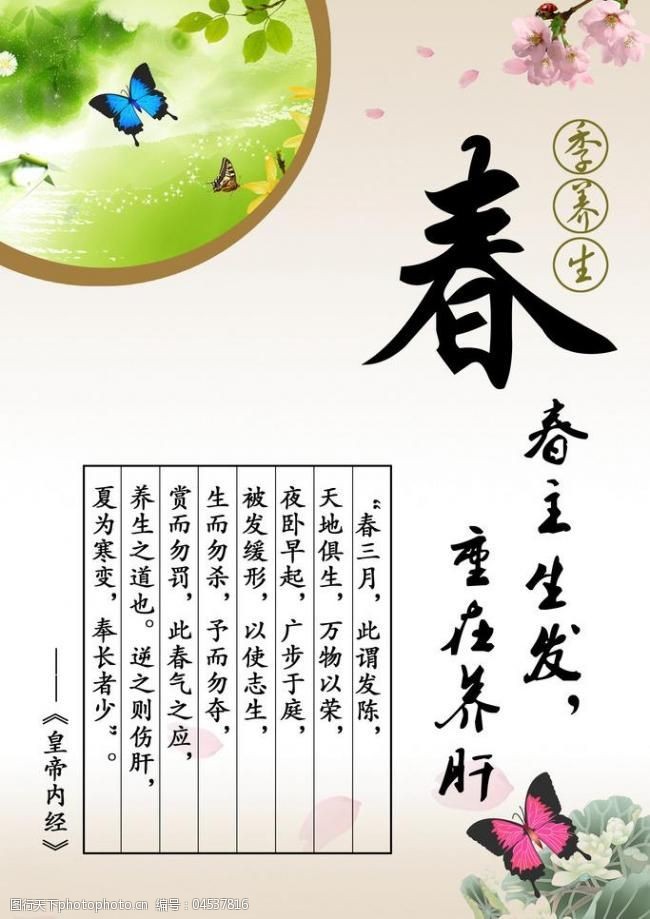 季养生
春
春主生发，
重在养肝
“春三月，此谓发陈，
天地俱生，万物以荣，
夜卧早起，广步于庭，
被发缓形，以使志生，
生而勿杀，予而勿夺，
赏而勿罚，此春气之应，
养生之道也。逆之则伤肝，
夏为寒变，奉长者少”。
——《皇帝内经》
图行天下 photophoto.cn 编号：04537816